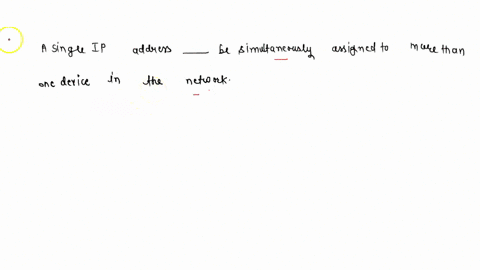 A single IP address ___ be simultaneously assigned to more than
one device in the network.